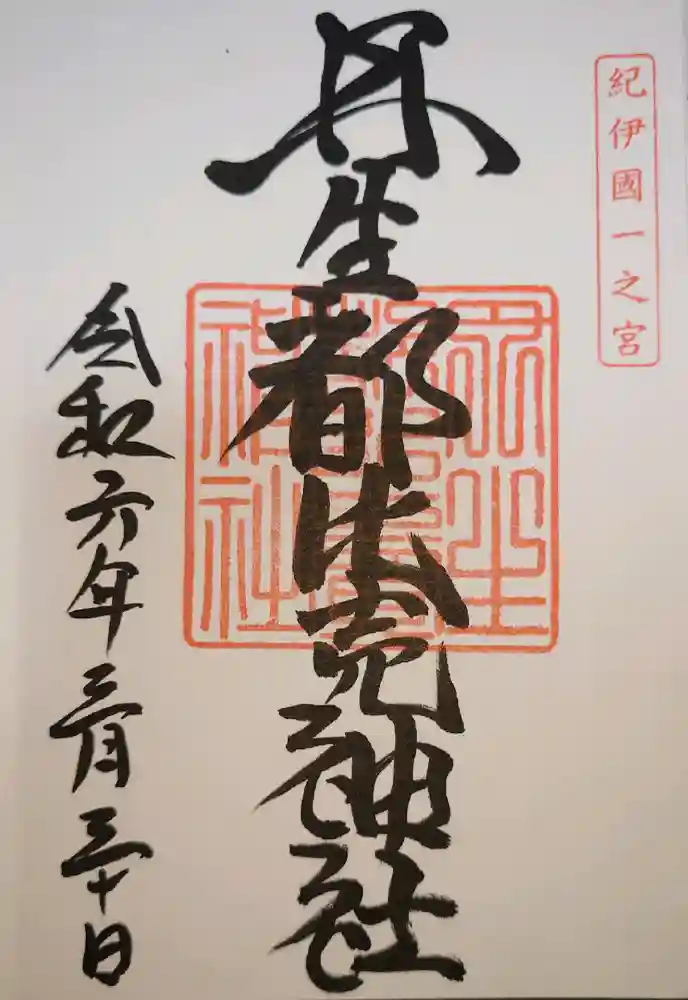 紀伊國一之宮
丹生都比売神社
令和六年三月三十日